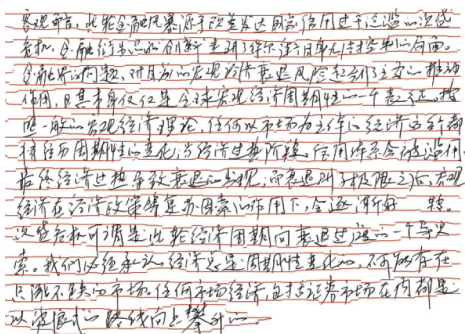 客观而言，此轮金融风暴源于欧美发达国家信用过于泛滥的次贷
危机，金融衍生品的创新走到了华尔街自身无法控制的局面。
金融界的问题，对目前的宏观经济衰退风险起到了主要的推动
作用，且其本身仅仅是全球宏观经济周期性的一个表征。按
照一般的宏观经济理论，任何以市场为主体的经济运行都
将经历周期性的变化，当经济过热阶段，信用体系会被滥用，
最终经济过热导致衰退的出现，而衰退到了极限之后，宏观
经济在经济政策等复苏因素的作用下，会逐渐好转。
次贷危机可谓是此轮经济周期向衰退过渡的一个导火
索。我们必须承认，经济总是周期性变化的，不可能存在
只涨不跌的市场，任何市场经济，包括证券市场在内都是
以发展式的路线向上攀升的。